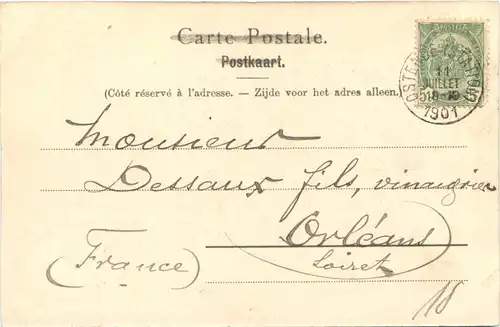 Carte Postale.
Postkaart.
(Côté réservé à l'adresse. — Zijde voor het adres alleen.)
11
JUILLET
1901
Monsieur
Dessaux fils, vinaigrier
Orléans
(France)
Loiret
18